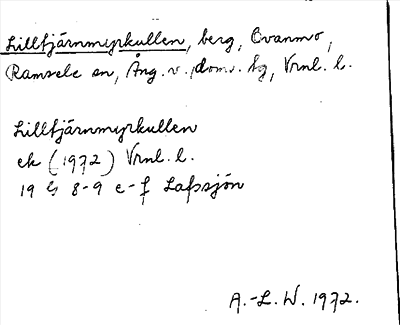 Lilltjärnmyrkullen, berg, Evanmo,
Ramsele sn, Ång. v. doms. tg, Vrnl. l.
Lilltjärnmyrkullen
ek (1972) Vrnl. l.
19 G 8-9 e-f Lafssjön
A.-L. W. 1972.